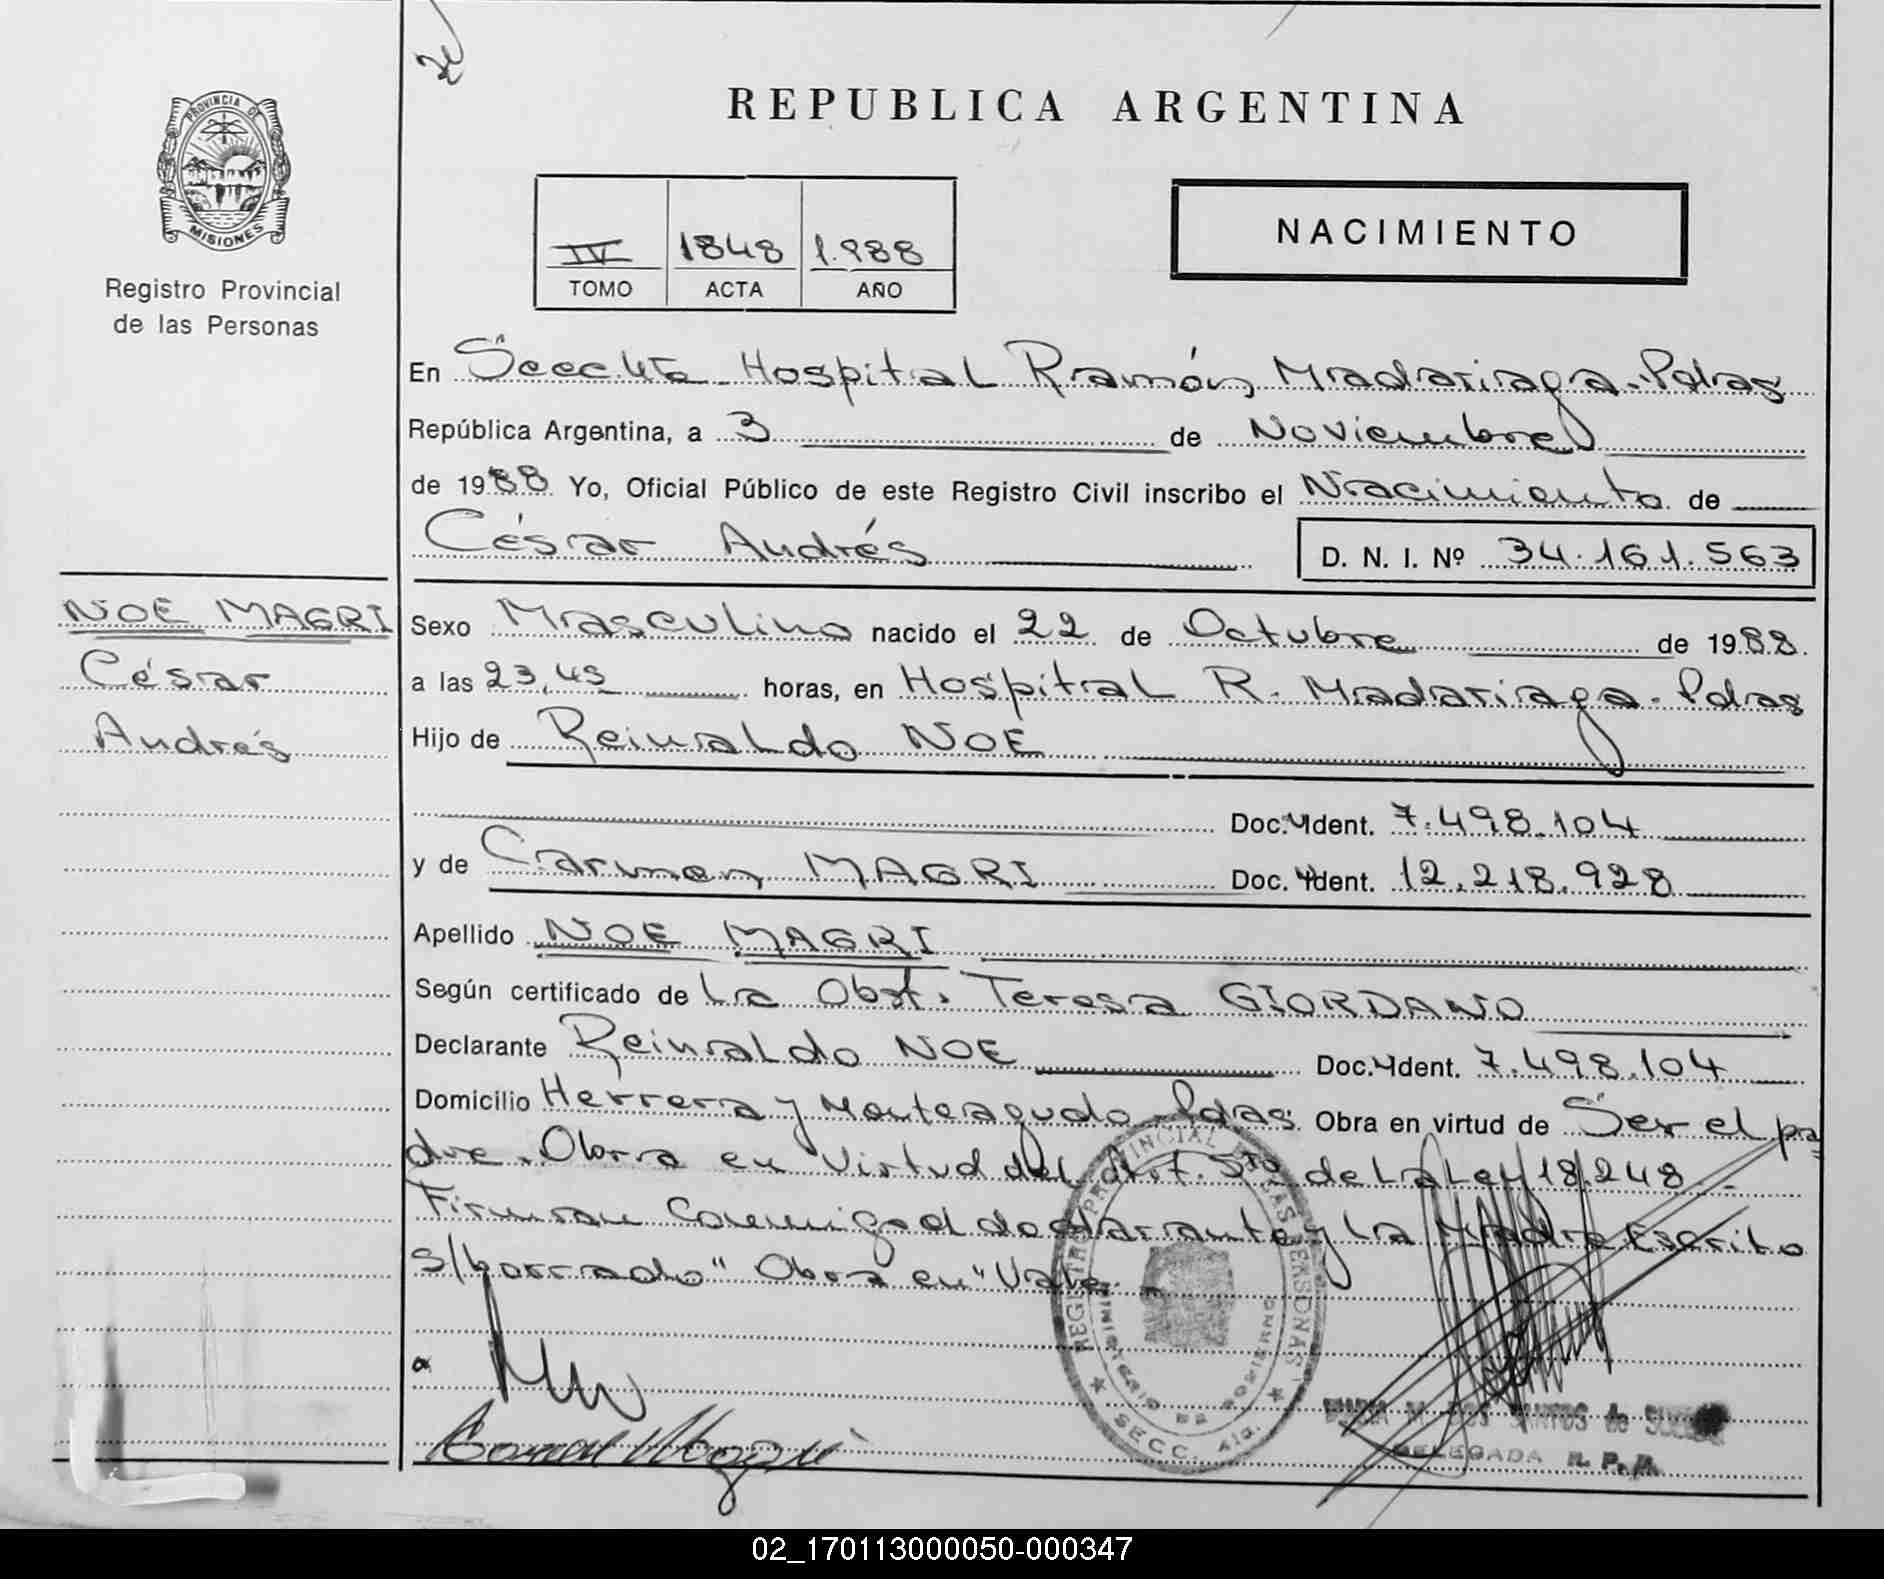 REPUBLICA ARGENTINA
PROVINCIA DE
MISIONES
Registro Provincial
de las Personas
IV 1848 1.988
TOMO ACTA AÑO
NACIMIENTO
En Secc 4ta Hospital Ramón Madariaga-Pdas
República Argentina, a 3 de Noviembre
de 1988 Yo, Oficial Público de este Registro Civil inscribo el Nacimiento de
César Andrés
D. N. I. Nº 34.161.563
NOE MAGRI
César
Andrés
Sexo Masculino nacido el 22 de Octubre de 1988.
a las 23,45 horas, en Hospital R. Madariaga-Pdas
Hijo de Reinaldo NOE
Doc. Ident. 7.498.104
y de Carmen MAGRI Doc. Ident. 12.218.928
Apellido NOE MAGRI
Según certificado de La Obst. Teresa GIORDANO
Declarante Reinaldo NOE Doc. Ident. 7.498.104
Domicilio Herrera y Monteagudo-Pdas Obra en virtud de Ser el pa
dre. Obra en Virtud del Art. 5to de La Ley 18.248.-
Firman Conmigo el declarante y La Madre Escrito
s/borrado" Obra en" Vale.-
REGISTRO PROVINCIAL DE LAS PERSONAS
MINISTERIO DE GOBIERNO
SECC. 4ta.
MARIA M. DOS SANTOS de
DELEGADA R. P. P.
02_170113000050-000347